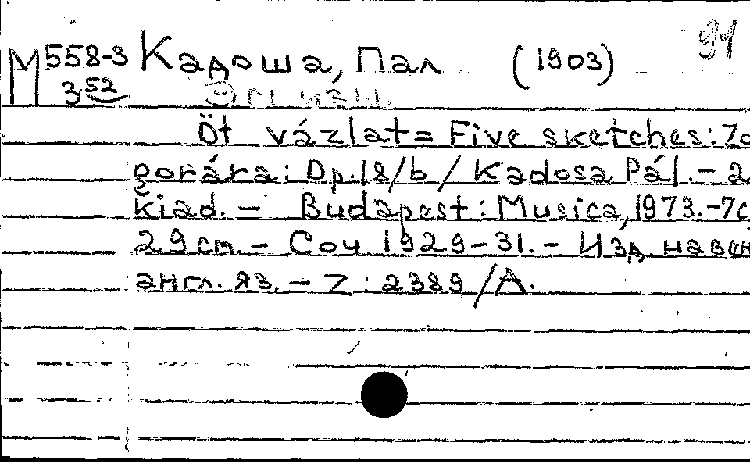 94
М 558-3 Кадоша, Пал (1903)
352 Эскизы
Öt vázlat = Five sketches: Zo
gorára: Op. 18/b / Kadosa Pál. - 2
kiad. - Budapest: Musica, 1973. - 7c
29cm. - Соч 1929-31. - Изд. на вен
англ. яз. - Z: 2389/A.